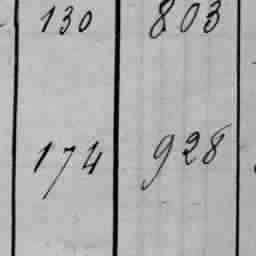 130 803
174 928